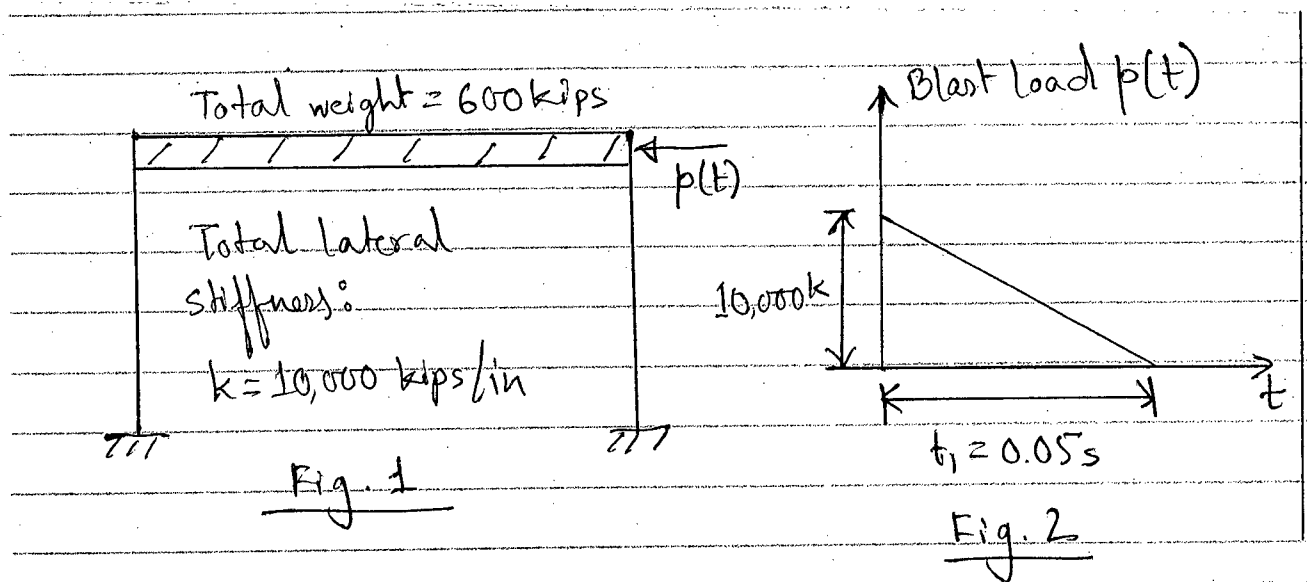 Total weight = 600 kips
p(t)
Total lateral
stiffness:
k = 10,000 kips/in
Fig. 1
Blast load p(t)
10,000k
t
t₁ = 0.05s
Fig. 2